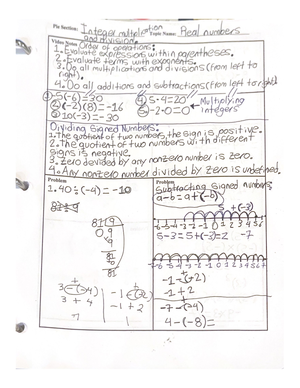 Pie Section: Integral multiplication and division. Topic Name: Real numbers
Video Notes Order of operations:
1. Evaluate expressions within parentheses.
2. Evaluate terms with exponents.
3. Do all multiplications and divisions (from left to right).
4. Do all additions and subtractions (from left to right)
① 5(-6)=30 ④ 5·4=20 Multiplying
② (-2)(8)=-16 ⑤ -2·0=0 integers
③ 10(-3)=-30
Dividing Signed Numbers.
1. The quotient of two numbers, the sign is positive.
2. The quotient of two numbers with different signs is negative.
3. Zero devided by any nonzero number is zero.
4. Any nonzero number divided by zero is undefined.
Problem
1. 40÷(-4)= -10
81 9
0 9
9
81
0
81
3-(-4) -1-(-2)
3+4 -1+2
7 1
Problem
Subtracting Signed numbers
a-b=a+(-b)
5+(-3)
-6-5-4-3-2-1 0 1 2 3 4 5 6 7
5-3=5+(-3)=2 -7
-6-5-4-3-2-1 0 1 2 3 4 5 6 7
-1-(-2)
-1+2
-7-(-4)
4-(-8)=